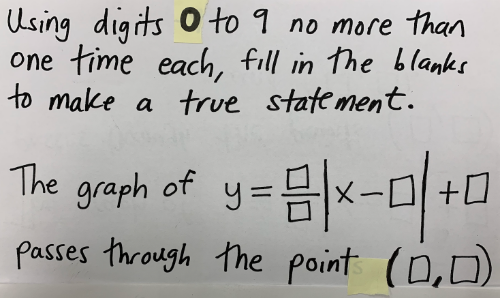 Using digits 0 to 9 no more than
one time each, fill in the blanks
to make a true statement.
The graph of y = □/□ |x - □| + □
passes through the point (□, □)